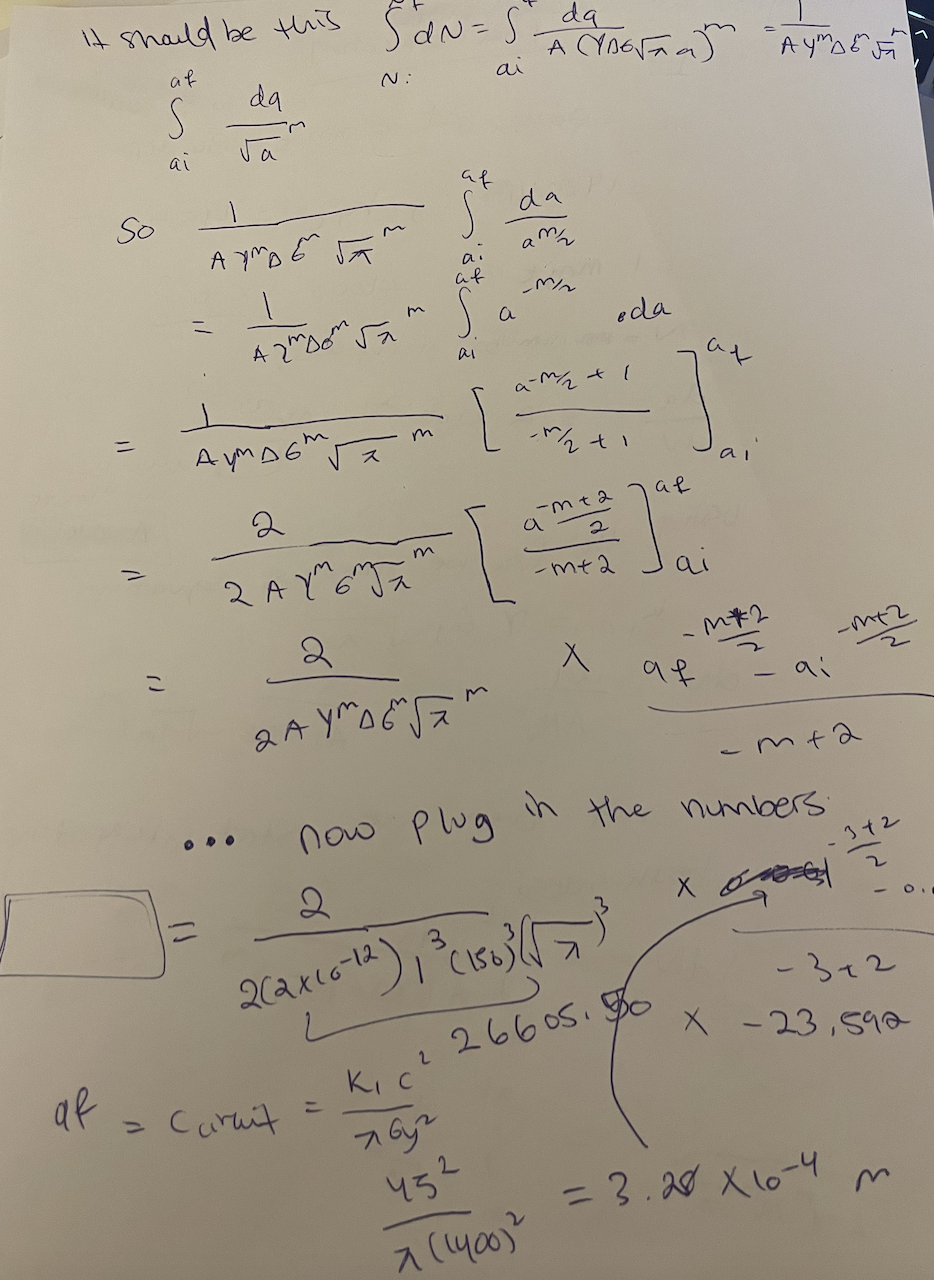 It should be this ∫ dN = ∫ da / A (YΔσ√π a)^m = 1 / A Y^m Δσ^m √π^m
N: ai
∫_{ai}^{af} da / √a^m
So 1 / A Y^m Δσ^m √π^m ∫_{ai}^{af} da / a^{m/2}
= 1 / A Y^m Δσ^m √π^m ∫_{ai}^{af} a^{-m/2} .da
= 1 / A Y^m Δσ^m √π^m [ a^{-m/2 + 1} / -m/2 + 1 ]_{ai}^{af}
= 2 / 2 A Y^m σ^m √π^m [ a^{(-m+2)/2} / -m+2 ]_{ai}^{af}
= 2 / 2 A Y^m Δσ^m √π^m × af^{(-m+2)/2} - ai^{(-m+2)/2} / -m+2
... now plug in the numbers
= 2 / 2(2×10^{-12}) 1^3 (150)^3 (√π)^3 × ^{(-3+2)/2} - 0. / -3+2
26605.50 × -23.592
af = Ccruit = K1c^2 / πσy^2
45^2 / π(1400)^2 = 3.28 ×10^{-4} m